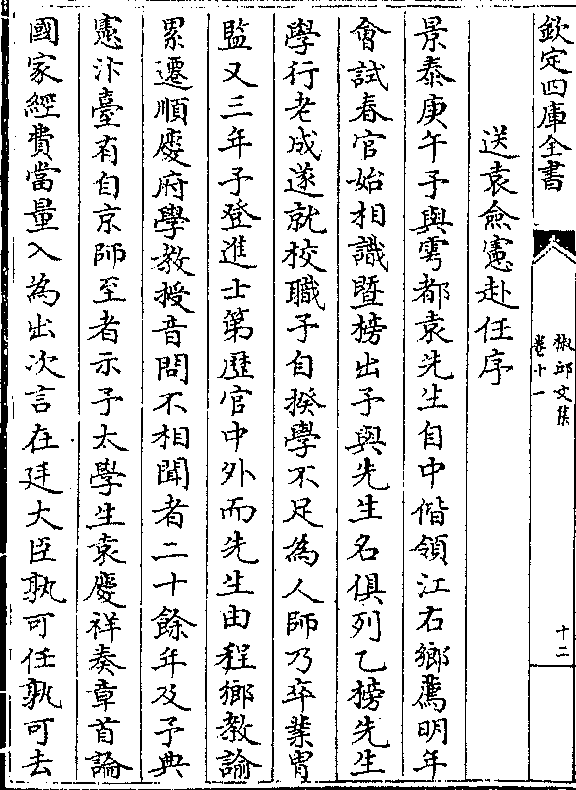 欽定四庫全書
椒邱文集
卷十一
十二
送袁僉憲赴任序
景泰庚午予與雩都袁先生自中偕領江右鄉薦明年
會試春官始相識暨榜出予與先生名俱列乙榜先生
學行老成遂就校職予自揆學不足為人師乃卒業胄
監又三年予登進士第歷官中外而先生由程鄉教諭
累遷順慶府學教授音問不相聞者二十餘年及予典
憲汴臺有自京師至者示予太學生袁慶祥奏章首論
國家經費當量入為出次言在廷大臣孰可任孰可去